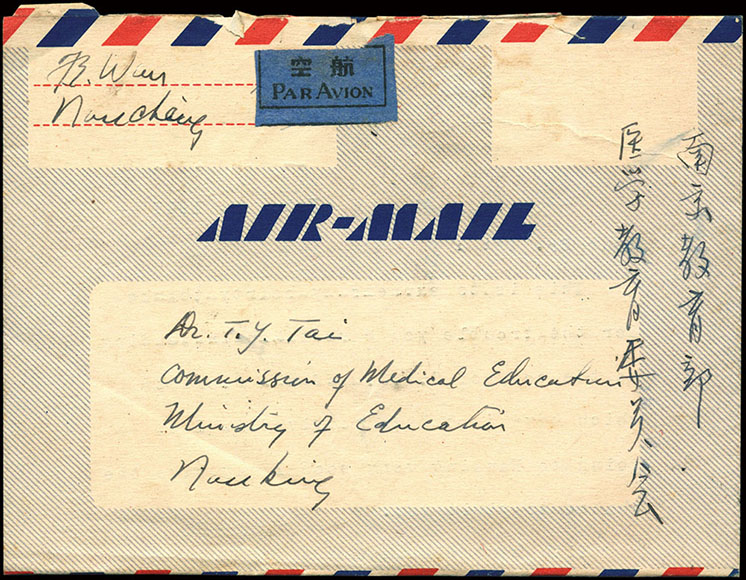 B. Wan
Nanchang
空航
PAR AVION
AIR-MAIL
Dr. T. Y. Tai
Commission of Medical Education
Ministry of Education
Nanking
南京教育部
医学教育委员会